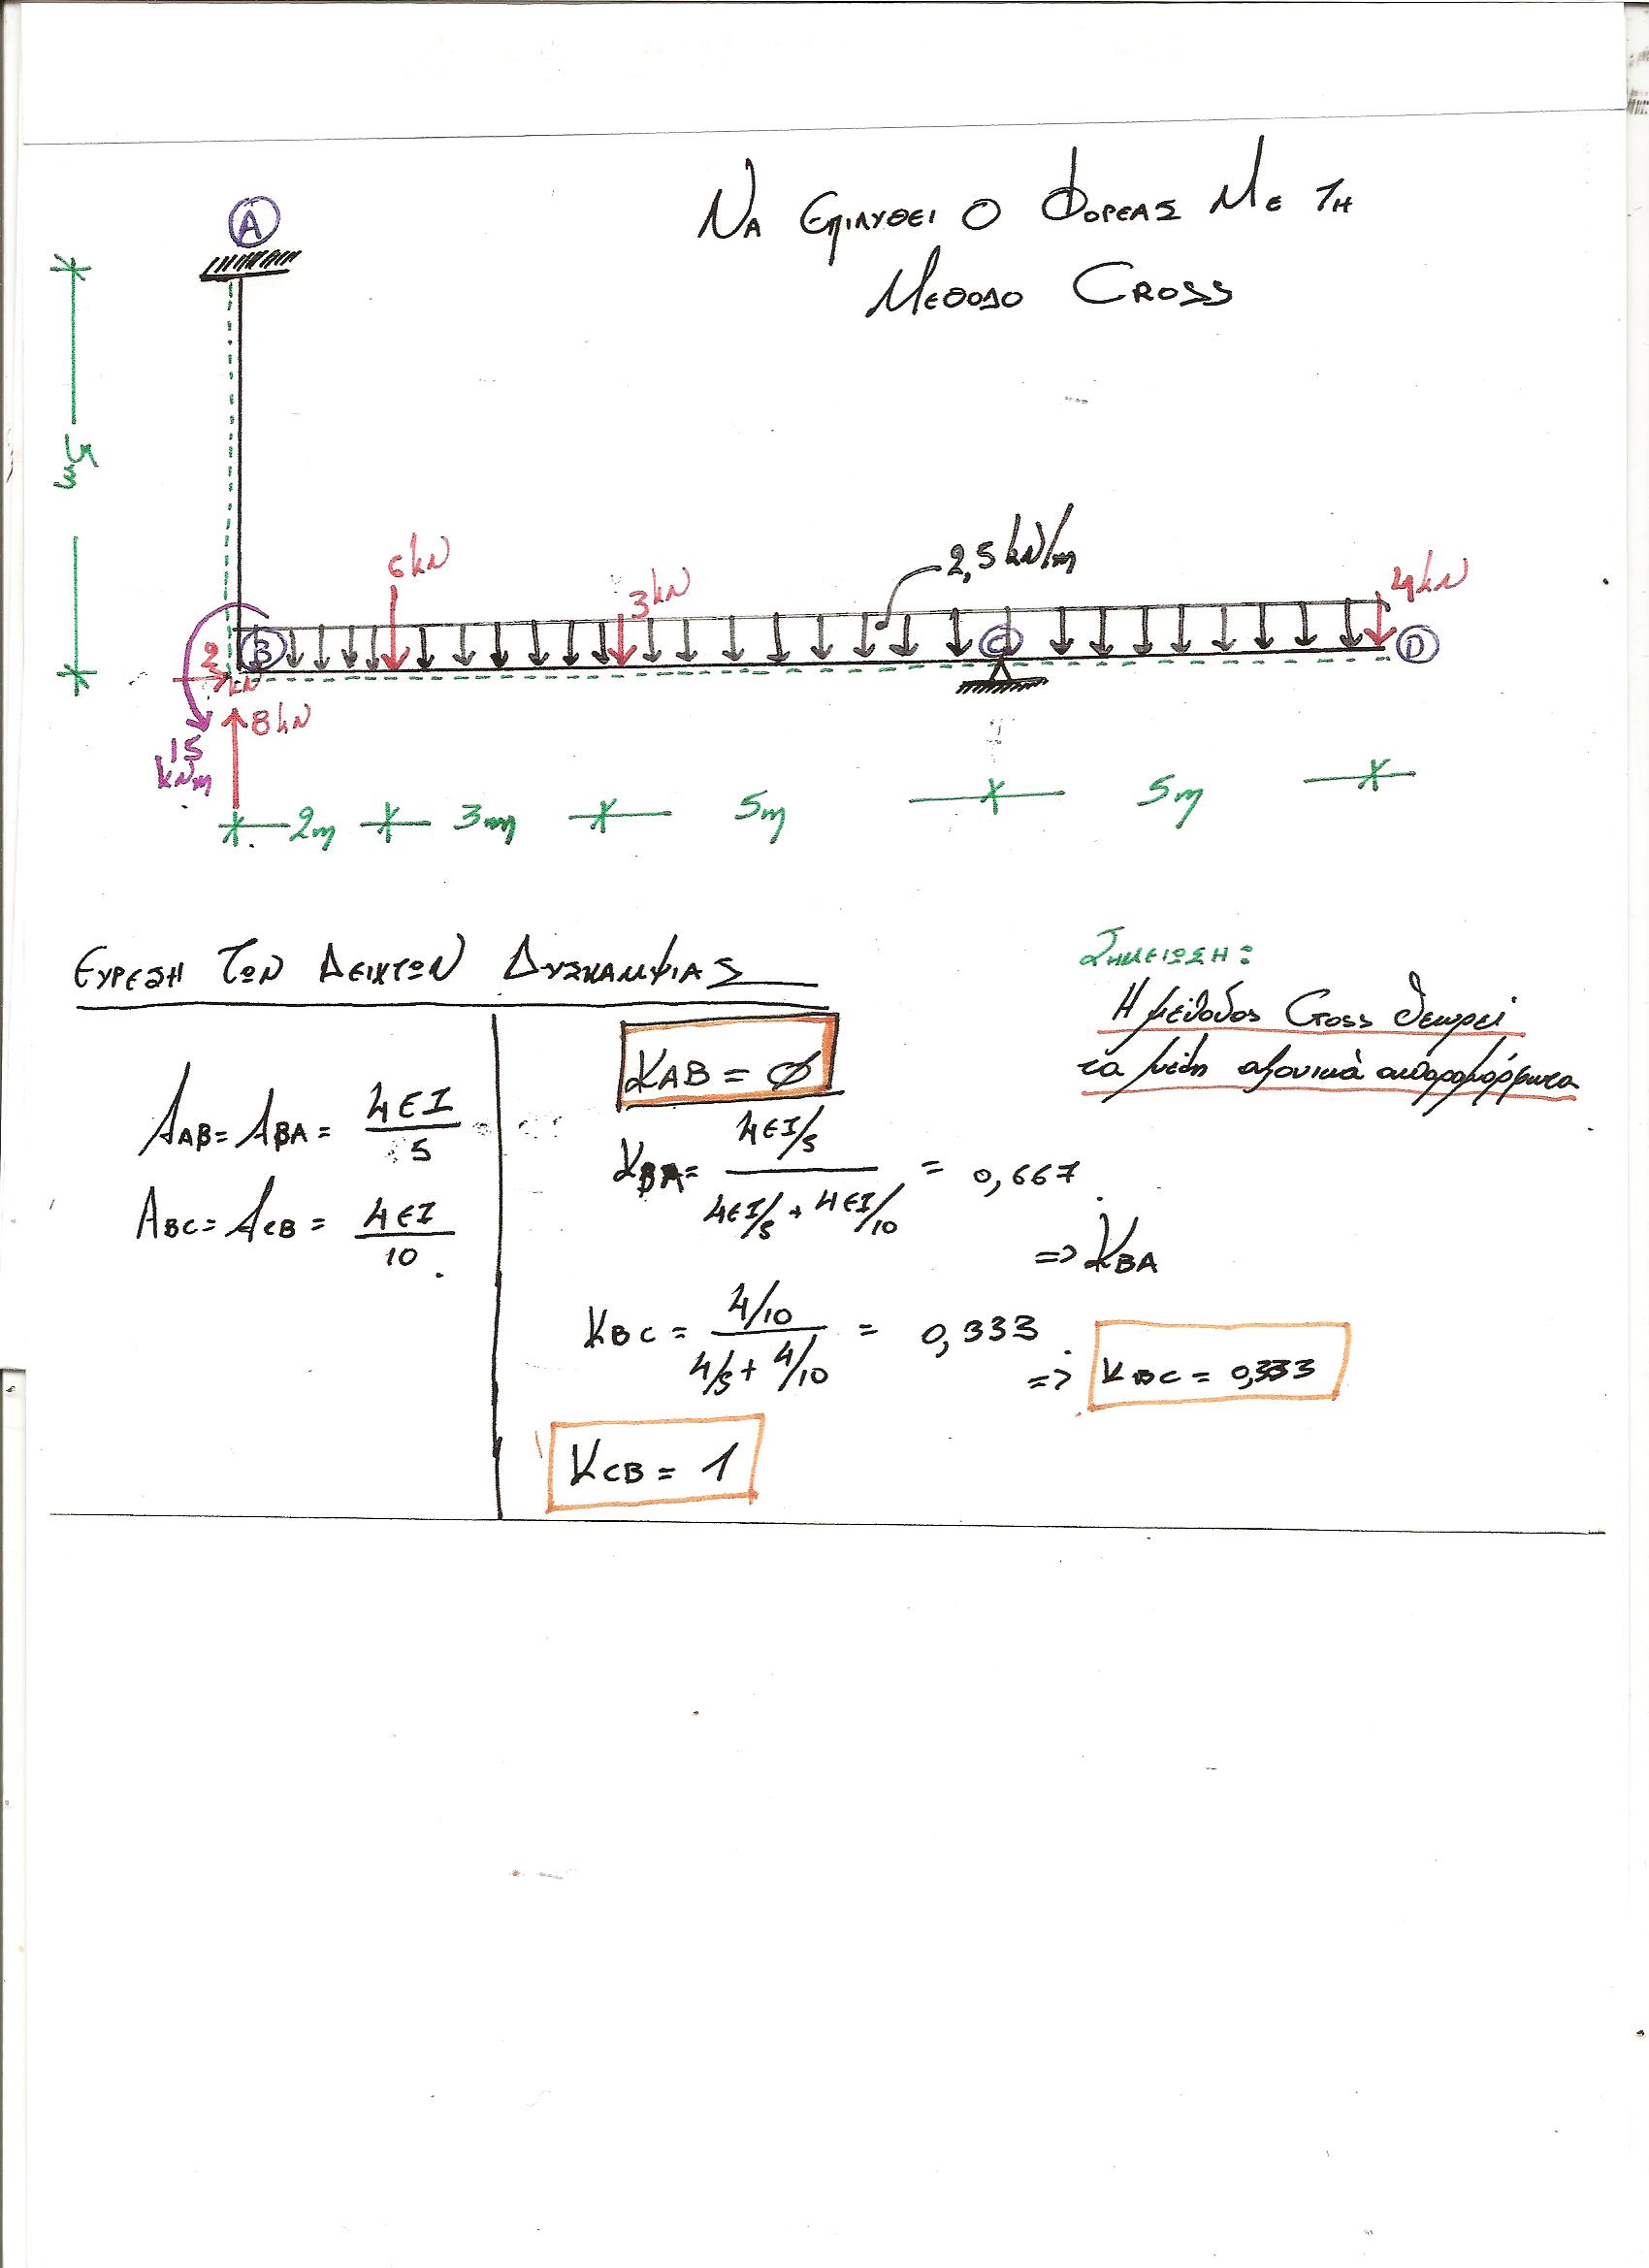 ΝΑ ΕΠΙΛΥΘΕΙ Ο ΦΟΡΕΑΣ ΜΕ ΤΗ
ΜΕΘΟΔΟ CROSS
A
5m
6kN
3kN
2,5 kN/m
4kN
B
C
D
2
kN
8kN
15
kNm
2m
3m
5m
5m
ΕΥΡΕΣΗ ΤΩΝ ΔΕΙΚΤΩΝ ΔΥΣΚΑΜΨΙΑΣ
ΣΗΜΕΙΩΣΗ:
Η μέθοδος Cross θεωρεί
τα μέλη αξονικά απαραμόρφωτα
ΛAB = ΛBA = 4EI/5
ΛBC = ΛCB = 4EI/10
KAB = Ø
KBA = 4EI/5 / 4EI/5 + 4EI/10 = 0,667
=> KBA
KBC = 4/10 / 4/5 + 4/10 = 0,333
=> KBC = 0,333
KCB = 1